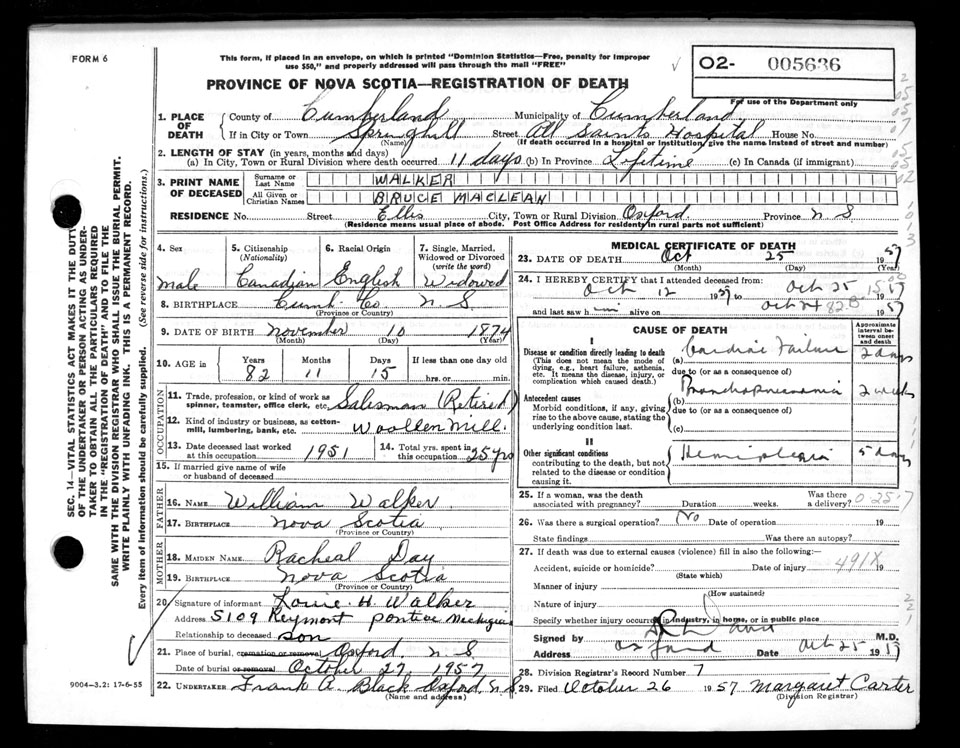 FORM 6
This form, if placed in an envelope, on which is printed "Dominion Statistics—Free, penalty for improper
use $50," and properly addressed will pass through the mail "FREE"
PROVINCE OF NOVA SCOTIA—REGISTRATION OF DEATH
O2- 005636
For use of the Department only
1. PLACE OF DEATH County of Cumberland Municipality of Cumberland
If in City or Town Springhill Street All Saints Hospital House No.
(Name) (If death occurred in a hospital or institution, give the name instead of street and number)
2. LENGTH OF STAY (in years, months and days)
(a) In City, Town or Rural Division where death occurred 11 days (b) In Province Lifetime (c) In Canada (if immigrant)
3. PRINT NAME OF DECEASED Surname or Last Name WALKER
All Given or Christian Names BRUCE MACLEAN
RESIDENCE No. Street Ellis City, Town or Rural Division Oxford Province N S
(Residence means usual place of abode. Post Office Address for residents in rural parts not sufficient)
4. Sex male
5. Citizenship (Nationality) Canadian
6. Racial Origin English
7. Single, Married, Widowed or Divorced (write the word) Widowed
8. BIRTHPLACE Cumb. Co. N. S
(Province or Country)
9. DATE OF BIRTH November 10 1874
(Month) (Day) (Year)
10. AGE in Years 82 Months 11 Days 15 If less than one day old hrs. or min.
OCCUPATION
11. Trade, profession, or kind of work as spinner, teamster, office clerk, etc. Salesman (Retired)
12. Kind of industry or business, as cotton-mill, lumbering, bank, etc. Woollen Mill.
13. Date deceased last worked at this occupation 1951
14. Total yrs. spent in this occupation 25 yrs
15. If married give name of wife or husband of deceased
FATHER
16. NAME William Walker
17. BIRTHPLACE Nova Scotia
(Province or Country)
MOTHER
18. MAIDEN NAME Racheal Day
19. BIRTHPLACE Nova Scotia
(Province or Country)
20. Signature of informant H. Walker
Address 5109 Pontiac Michigan
Relationship to deceased son
21. Place of burial, cremation or removal Oxford, N. S
Date of burial or removal October 27, 1957
22. UNDERTAKER Frank A. Black Oxford, N S
(Name and address)
MEDICAL CERTIFICATE OF DEATH
23. DATE OF DEATH Oct 25 1957
(Month) (Day) (Year)
24. I HEREBY CERTIFY that I attended deceased from:
Oct 12 1957 to Oct 25 1957
and last saw h im alive on Oct 24 1957
CAUSE OF DEATH
Approximate interval between onset and death
I
Disease or condition directly leading to death
(This does not mean the mode of dying, e.g., heart failure, asthenia, etc. It means the disease, injury, or complication which caused death.)
(a) Cardiac Failure 2 days
due to (or as a consequence of)
Antecedent causes
Morbid conditions, if any, giving rise to the above cause, stating the underlying condition last.
(b) Bronchopneumonia 2 weeks
due to (or as a consequence of)
(c)
II
Other significant conditions
contributing to the death, but not related to the disease or condition causing it.
Hemiplegia 5 days
25. If a woman, was the death associated with pregnancy? Duration weeks. Was there a delivery?
26. Was there a surgical operation? No Date of operation 19
State findings Was there an autopsy?
27. If death was due to external causes (violence) fill in also the following:—
Accident, suicide or homicide? Date of injury 19
(State which)
491X
Manner of injury
(How sustained)
Nature of injury
Specify whether injury occurred in industry, in home, or in public place
Signed by M.D.
Address Oxford Date Oct 25 1957
28. Division Registrar's Record Number 7
29. Filed October 26 1957 Margaret Carter
(Division Registrar)
SEC. 14—VITAL STATISTICS ACT MAKES IT THE DUTY
OF THE UNDERTAKER OR PERSON ACTING AS UNDER-
TAKER TO OBTAIN ALL THE PARTICULARS REQUIRED
IN THE "REGISTRATION OF DEATH" AND TO FILE THE
SAME WITH THE DIVISION REGISTRAR WHO SHALL ISSUE THE BURIAL PERMIT.
WRITE PLAINLY WITH UNFADING INK. THIS IS A PERMANENT RECORD.
Every item of information should be carefully supplied. (See reverse side for instructions.)
9004-3.2: 17-6-55